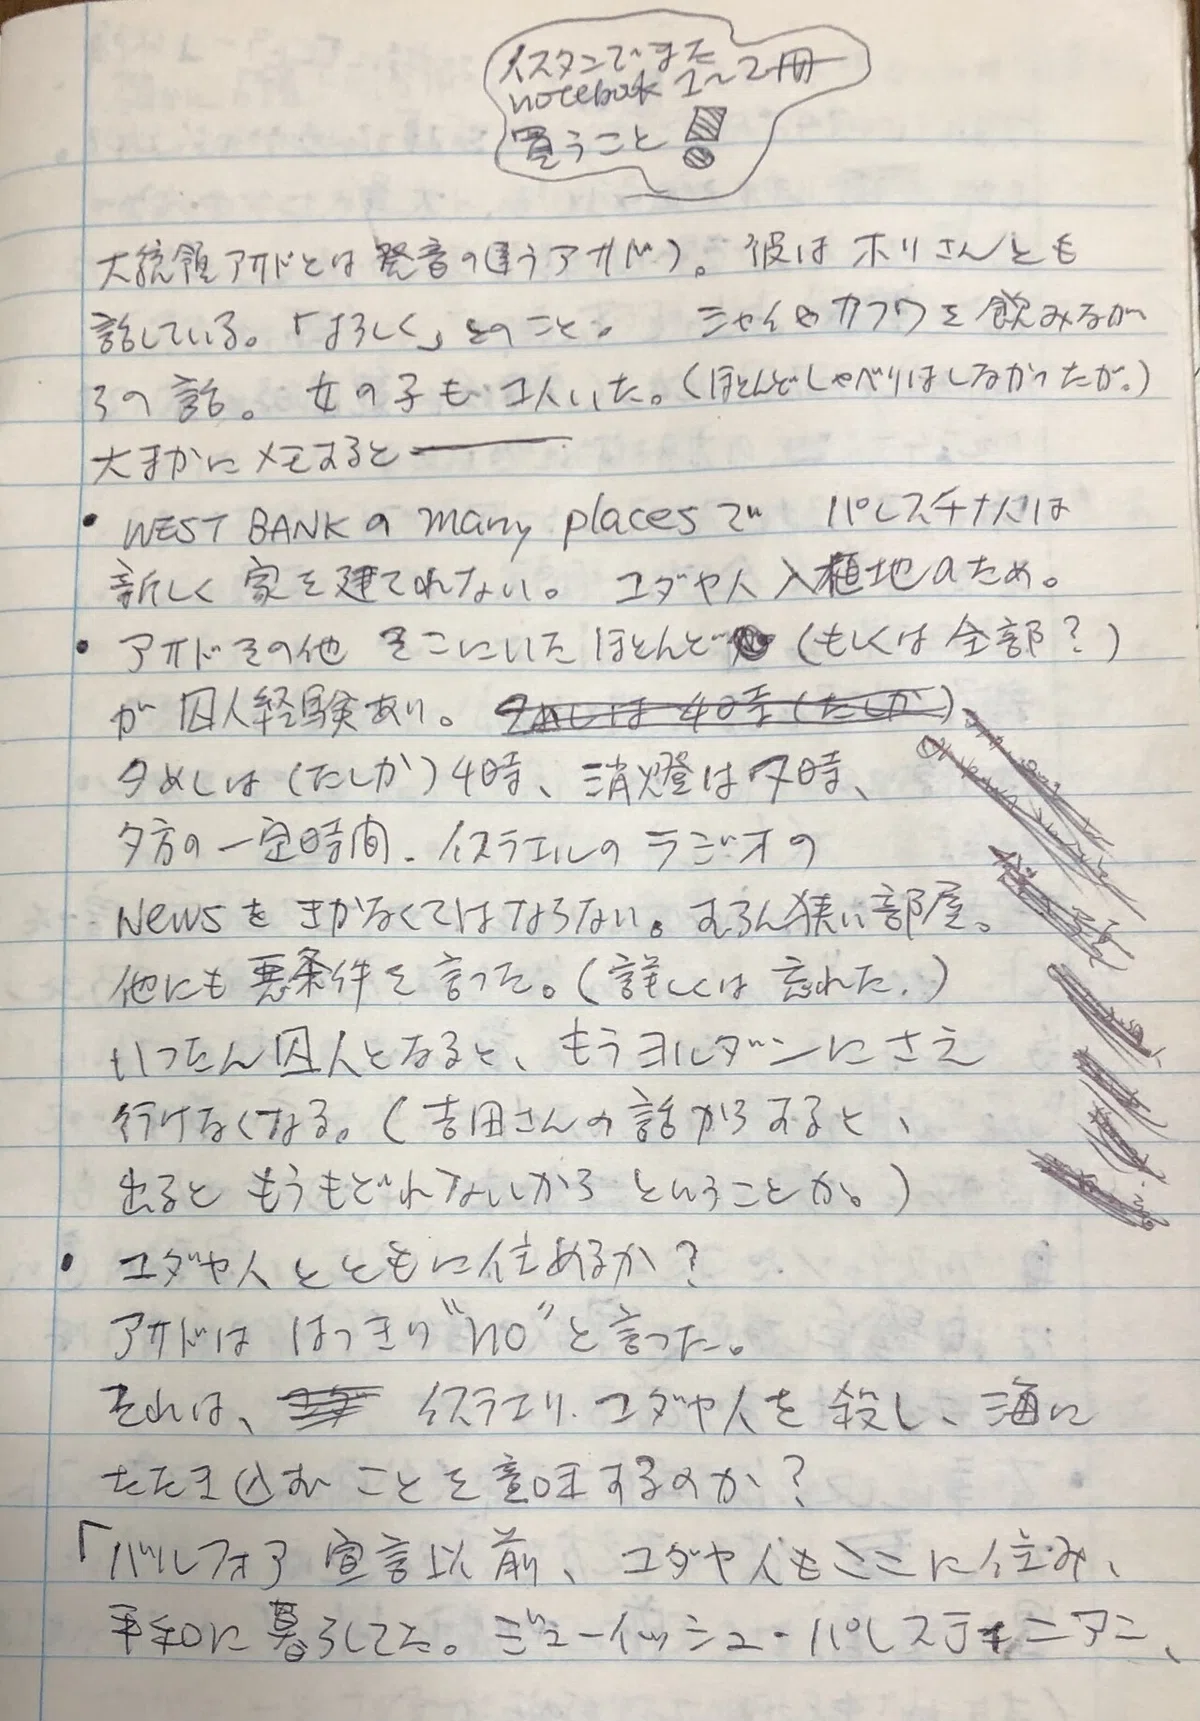 イスタンでまた
notebook 1〜2冊
買うこと!
大統領アサドとは発音の違うアサド)。彼はホリさんとも
話している。「よろしく」とのこと。 シャイやカフワを飲みなが
らの話。女の子も1人いた。(ほとんどしゃべりはしなかったが。)
大まかにメモすると――
• WEST BANKの many placesで パレスチナ人は
新しく家を建てれない。ユダヤ人入植地のため。
• アサドその他 そこにいたほとんど (もしくは全部?)
が囚人経験あり。夕めしは40時(たしか)
夕めしは(たしか)4時、消燈は7時、
夕方の一定時間、イスラエルのラジオの
Newsをきかなくてはならない。むろん狭い部屋。
他にも悪条件を言った。(詳しくは忘れた.)
いったん囚人となると、もうヨルダンにさえ
行けなくなる。(吉田さんの話からすると、
出るともうもどれないからということか。)
• ユダヤ人とともに住めるか?
アサドははっきり"no"と言った。
それは、イスラエリ・ユダヤ人を殺し、海に
たたき込むことを意味するのか?
「バルフォア宣言以前、ユダヤ人もここに住み、
平和に暮らしてた。ジューイッシュ・パレスティニアン、